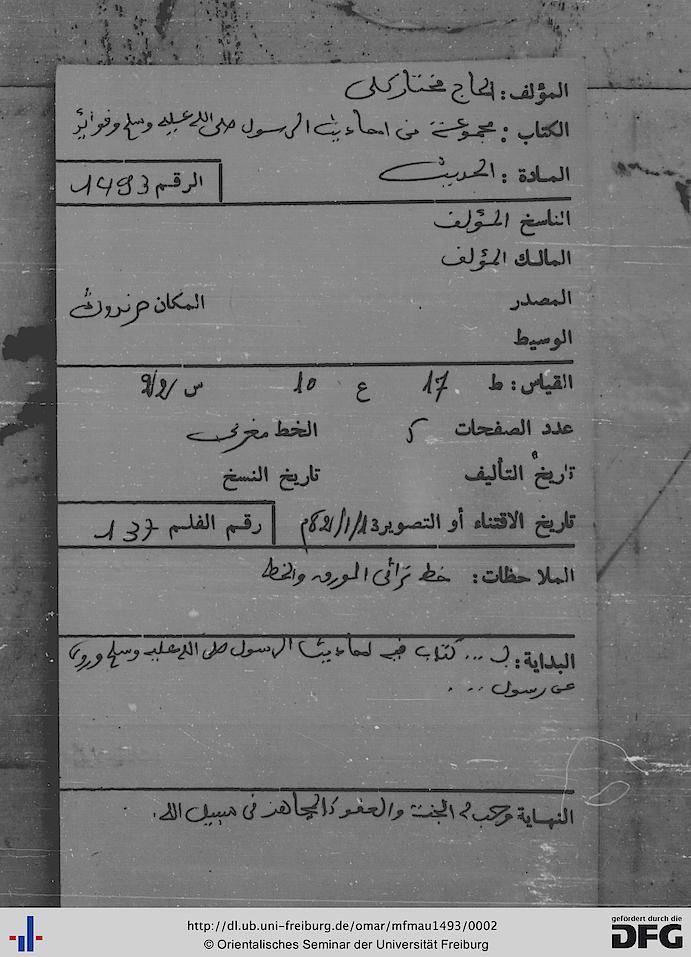 المؤلف: الحاج مختار كلي
الكتاب: مجموعة من احاديث الرسول صلى الله عليه وسلم وفوائد
المادة: الحديث
الرقم 1493
الناسخ المؤلف
المالك المؤلف
المصدر
المكان
الوسيط
القياس: ط 17 ع 10 س
عدد الصفحات 5 الخط مغربي
تاريخ التأليف تاريخ النسخ
تاريخ الاقتناء أو التصوير
رقم الفلم 137
الملاحظات: خط تراثي الورق والخط
البداية: ... كتاب فيه احاديث الرسول صلى الله عليه وسلم وروى
عن رسول ...
النهاية وجب له الجنة والعفو المجاهد في سبيل الله.
http://dl.ub.uni-freiburg.de/omar/mfmau1493/0002
© Orientalisches Seminar der Universität Freiburg
gefördert durch die
DFG